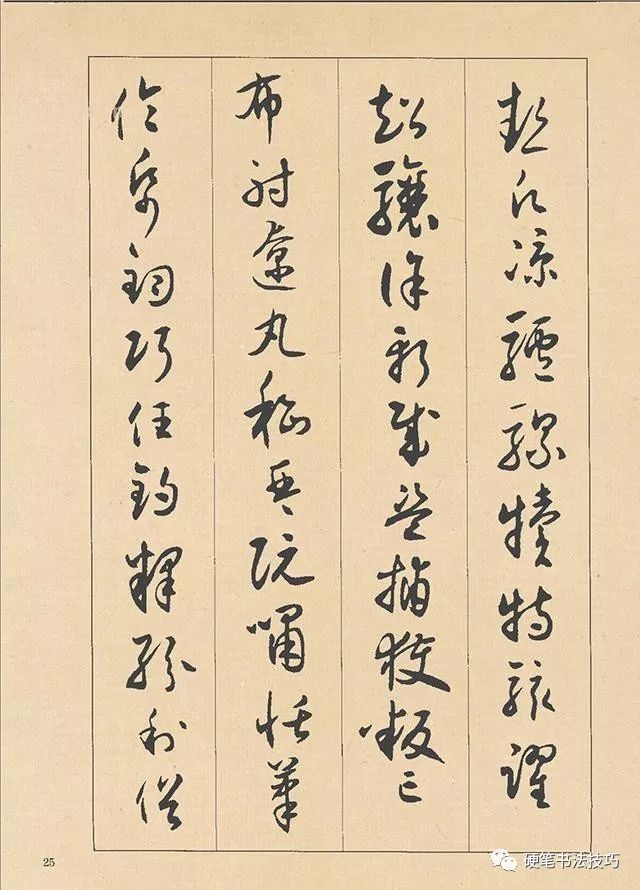 熱願涼驢騾犢特駭躍
超驤誅斬賊盜捕獲叛亡
布射遼丸嵇琴阮嘯恬筆
倫紙鈞巧任釣釋紛利俗
25
硬笔书法技巧